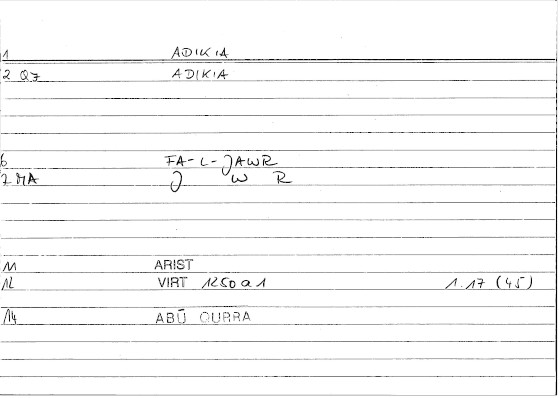 1 ADIKIA
2 Q7 ADIKIA
6 FA-L-JAWR
7 MA J W R
11 ARIST
12 VIRT 1250a1 1.17 (45)
14 ABŪ QURRA